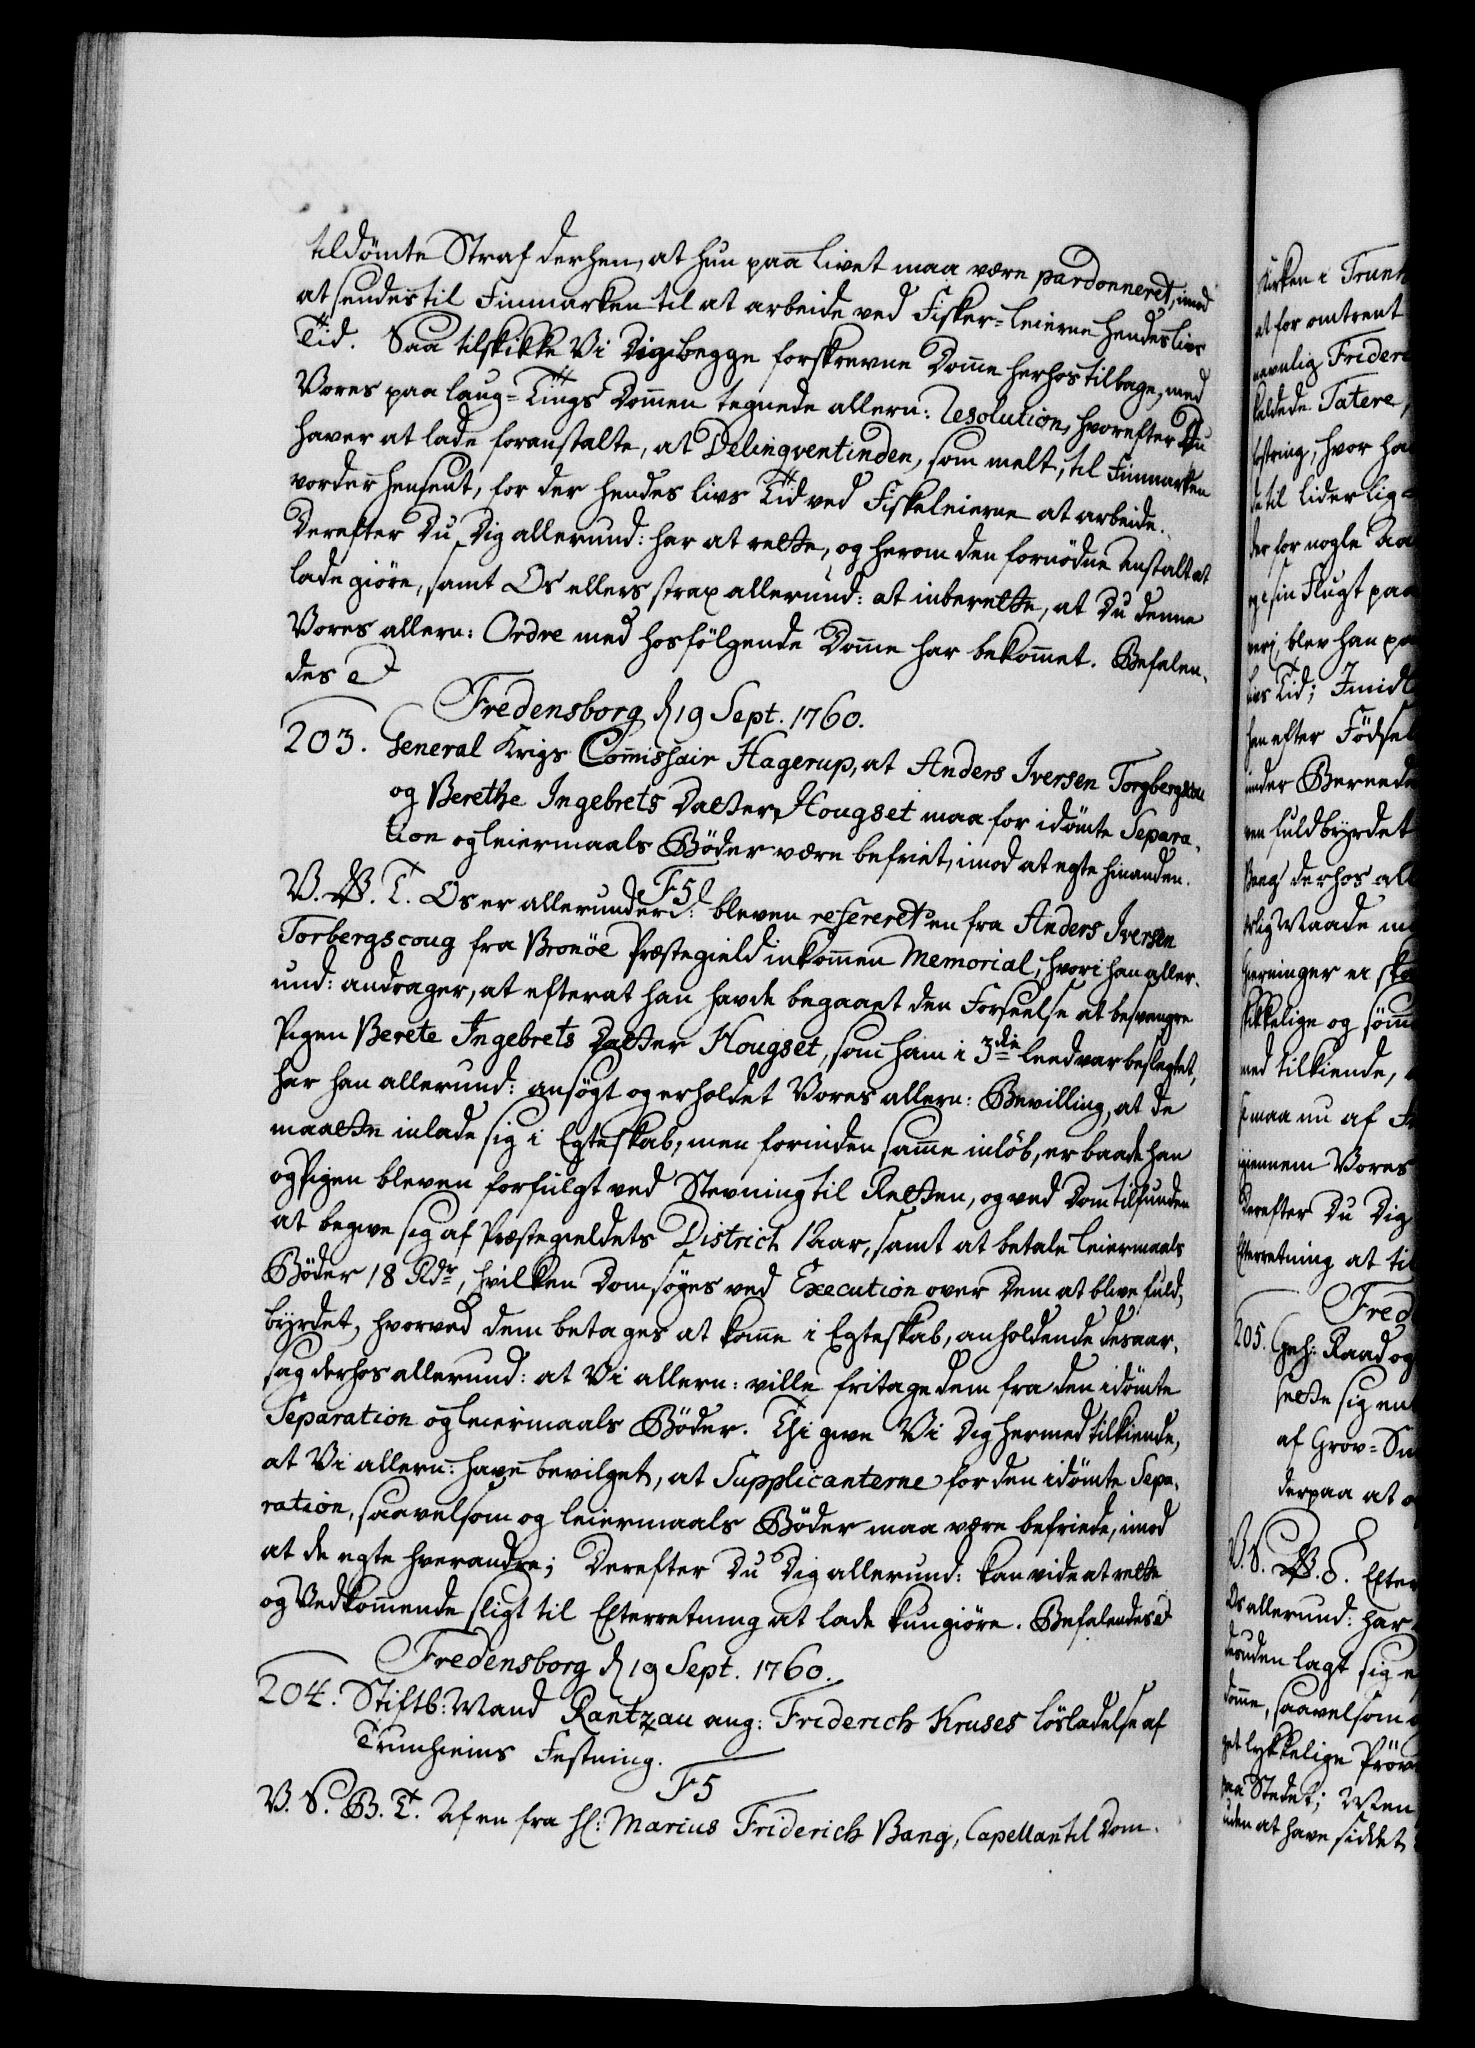 tildömte Straf derhen, at hun paa livet maa være pardonneret, imod
at sendes til Finmarken til at arbeide ved Fisker-leierne hendes livs
Tid. Saa tilskikke Vi Dig begge forskrevne Domme herhos tilbage, med
Vores paa laug-Tings Dommen tegnede allern: Resolution, hvorefter Du
haver at lade foranstalte, at Delinqventinden, som melt, til Finmarken
vorder hensent, for der hendes livs Tid ved Fiskeleierne at arbeide.
Derefter Du Dig allerund: har at rette, og herom den fornödne Anstalt at
lade giöre, samt Os ellers strax allerund: at inberette, at Du denne
Vores allern: Ordre med hosfölgende Domme har bekommet. Befalen-
des
Fredensborg d 19 Sept. 1760.
203. General Krigs Commissair Hagerup, at Anders Iversen Torgbergscou
og Berethe Ingebrets Datter Hougset maa for idömte Separa-
tion og leiermaals Böder være befriet, imod at egte hinanden.
F5
V. W. T. Os er allerunderd: bleven refereret en fra Anders Iversen
Torbergscoug fra Bronöe Præstegield inkommen Memorial, hvori han aller-
und: andrager, at efterat han havde begaaet den Forseelse at besvangre
Pigen Berete Ingebrets Datter Hougset, som ham i 3die leed var beslegtet,
har han allerund: ansögt og erholdet Vores allern: Bevilling, at de
maatte inlade sig i Egteskab, men forinden samme inlöb, er baade han
og Pigen bleven forfulgt ved Stevning til Retten, og ved Dom tilfunden
at begive sig af Præstegieldets District 1 Aar, samt at betale leiermaals
Böder 18 Rdr, hvilken Dom söges ved Execution over Dem at blive fuld-
byrdet, hvorved dem betages at komme i Egteskab, anholdende desaar-
sag derhos allerund: at Vi allern: ville fritage dem fra den idömte
Separation og leiermaals Böder. Thi give Vi Dig hermed tilkiende,
at Vi allern: have bevilget, at Supplicanterne for den idömte Sepa-
ration, saavelsom og leiermaals Böder maa være befriede, imod
at de egte hverandre; Derefter Du Dig allerund: kan vide at rette
og Vedkommende sligt til Efterretning at lade kundgiöre. Befalendes
Fredensborg d 19 Sept. 1760.
204. Stiftb: Mand Rantzau ang: Friderich Kruses lösladelse af
Trunhiems Festning.
F5
V. S. B. T. Af en fra Hl: Marius Friderich Bang, Capellan til Dom-
Kirken i Trunh
at for omtrent
navnlig Frider
kaldede Tatere,
hvor ha
de til liderlig
der for nogle Aa
sin Flugt paa
blev han pa
livs Tid; Imidl
han efter Födsel
under
fuldbyrdet
derhos al
Maade m
Gierninger ei
skikkelige og sömm
med tilkiende,
maa nu af
igiennem Vores
Derefter Du Dig
Efterretning at til
Fred
205. Geh: Raad og
sette sig en
af Grov-Sm
derpaa at
V. S. W. G. Efter
Os allerund: har
lagt sig e
domme, saavelsom
lykkelige Pröv
paa Stedet; Men
uden at have siddet